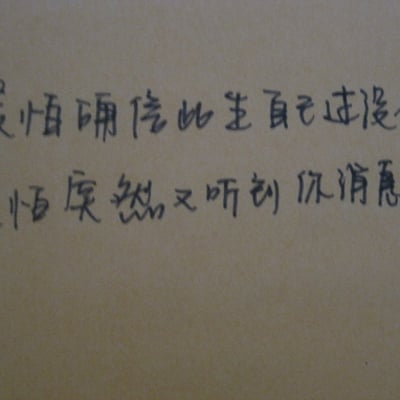 怕确信此生自己过没
怕突然又听到你消息